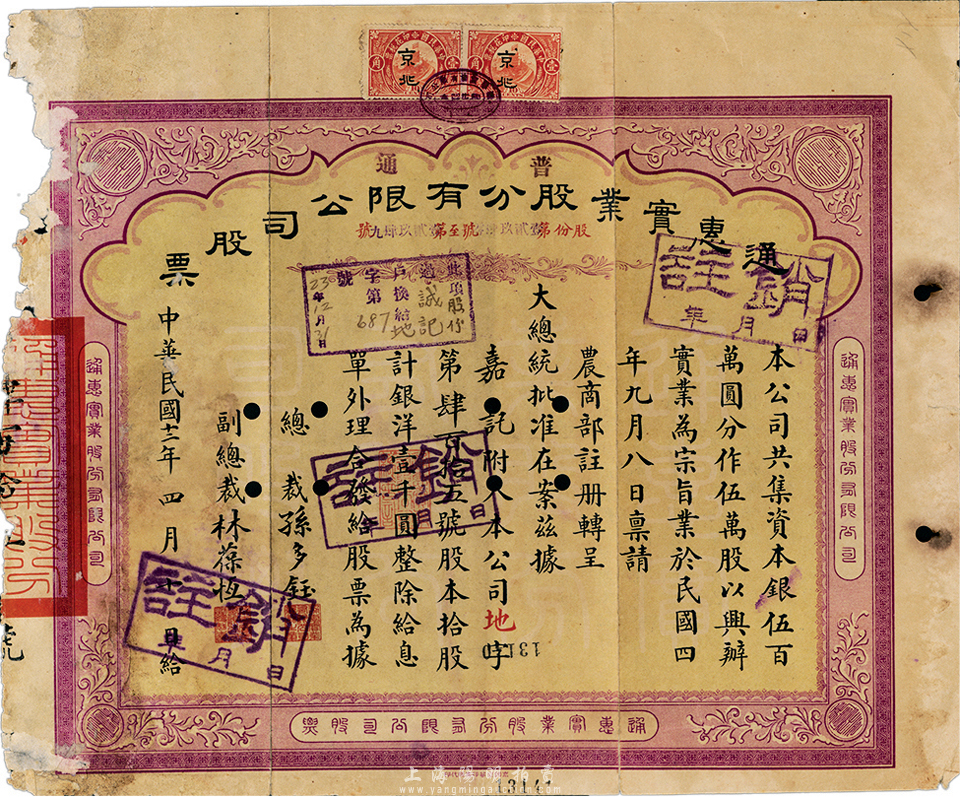 京兆
京兆
普通
通惠實業股份有限公司股票
股份第壹貳玖肆號至第壹貳玖肆九號
本公司共集資本銀伍百
萬圓分作伍萬股以興辦
實業為宗旨業於民國四
年九月八日稟請
農商部註册轉呈
大總統批准在案茲據
嘉記附入本公司地字
第肆百拾五號股本拾股
計銀洋壹千圓整除給息
單外理合發給股票為據
總裁孫多鈺
副總裁林葆恆
中華民國十三年四月日給
此項股份
過誠記
戶換給地
字第687
號
23年12月31日
註銷
年月日
註銷
年月日
註銷
年月日
13140
通惠實業股份有限公司
通惠實業股份有限公司
通惠實業股份有限公司股票
13141
上海陽明拍賣
www.yangmingauction.com